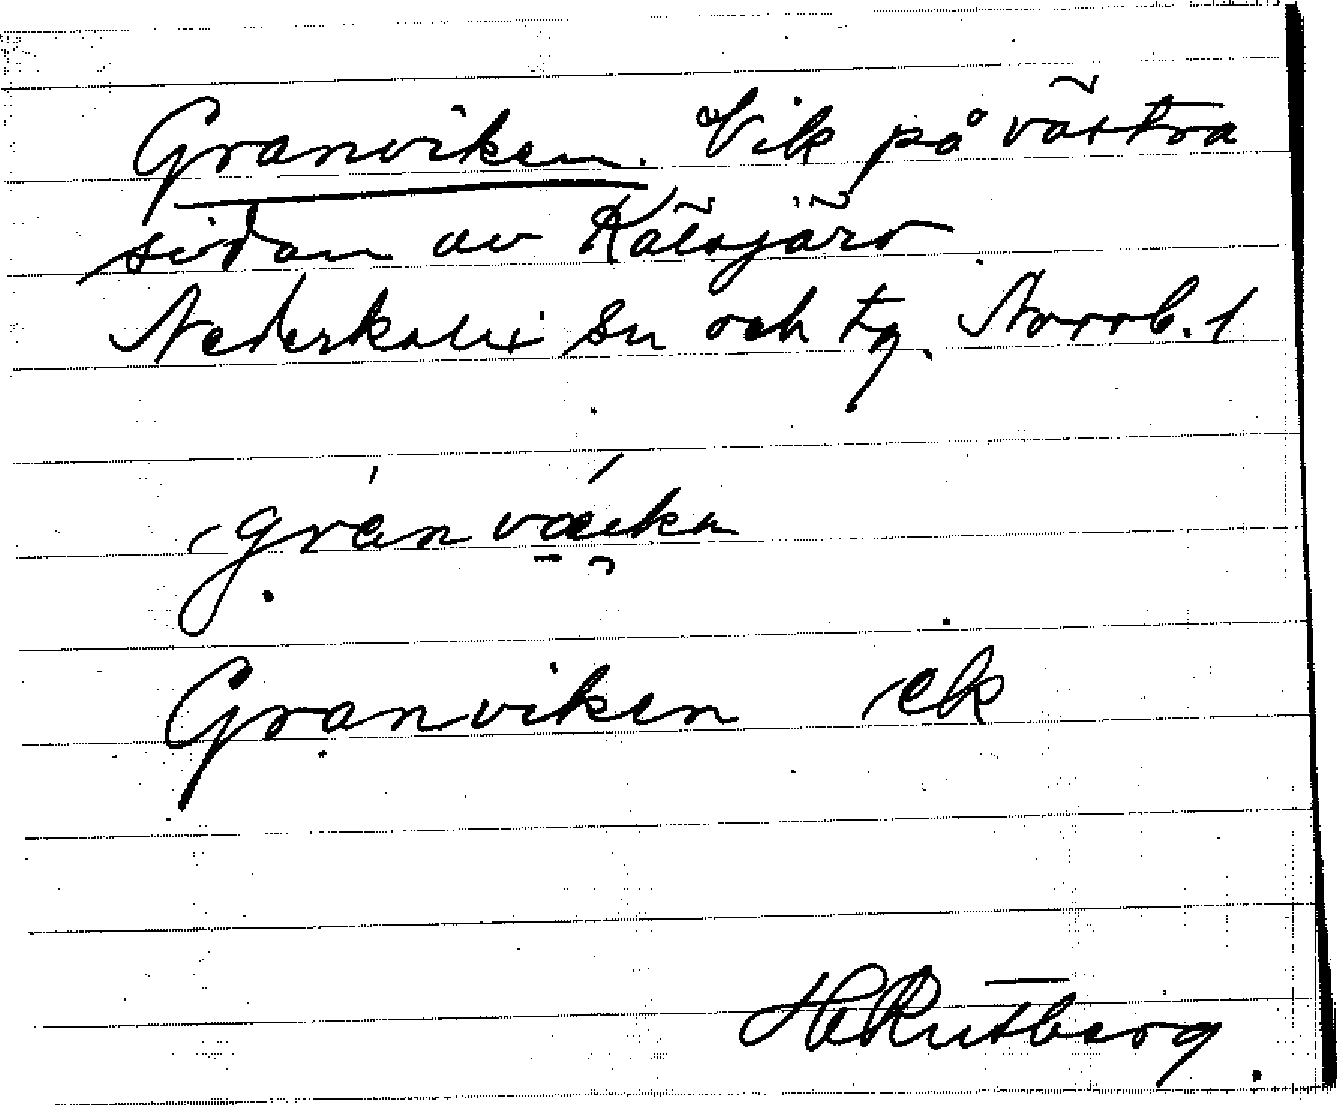 Granviken. Vik på västra
sidan av Kälsjärv
Nederkalix sn och tg. Norrb. l
Granviken ek
H Rutberg